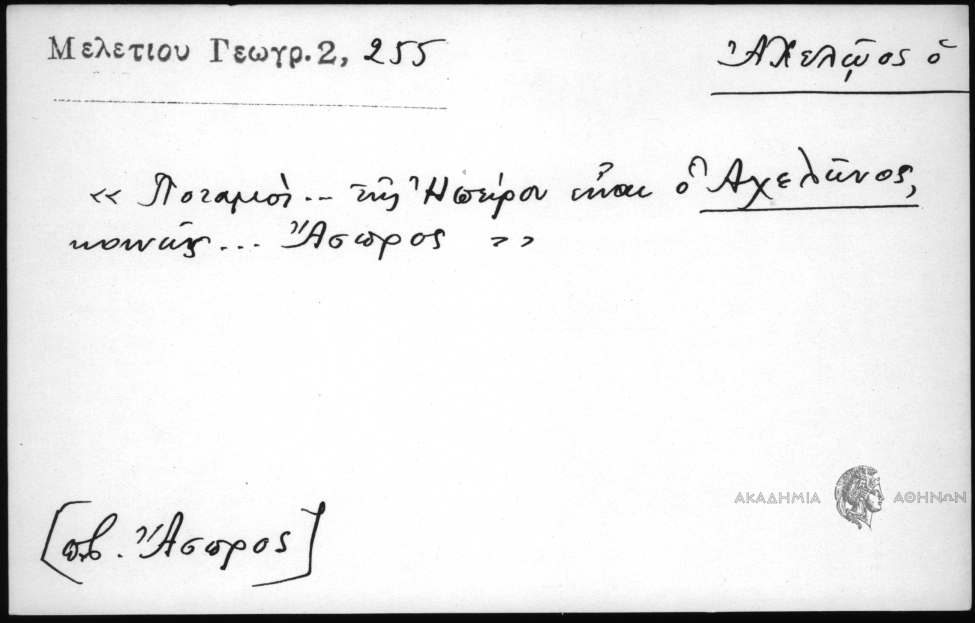 Μελετιου Γεωγρ. 2, 255
Ἀχελῷος ὁ
« Ποταμοὶ... τῆς Ἠπείρου εἶναι ὁ Ἀχελῶνος,
κοινῶς... Ἄσπρος »
[πβ. Ἄσπρος]
ΑΚΑΔΗΜΙΑ ΑΘΗΝΩΝ